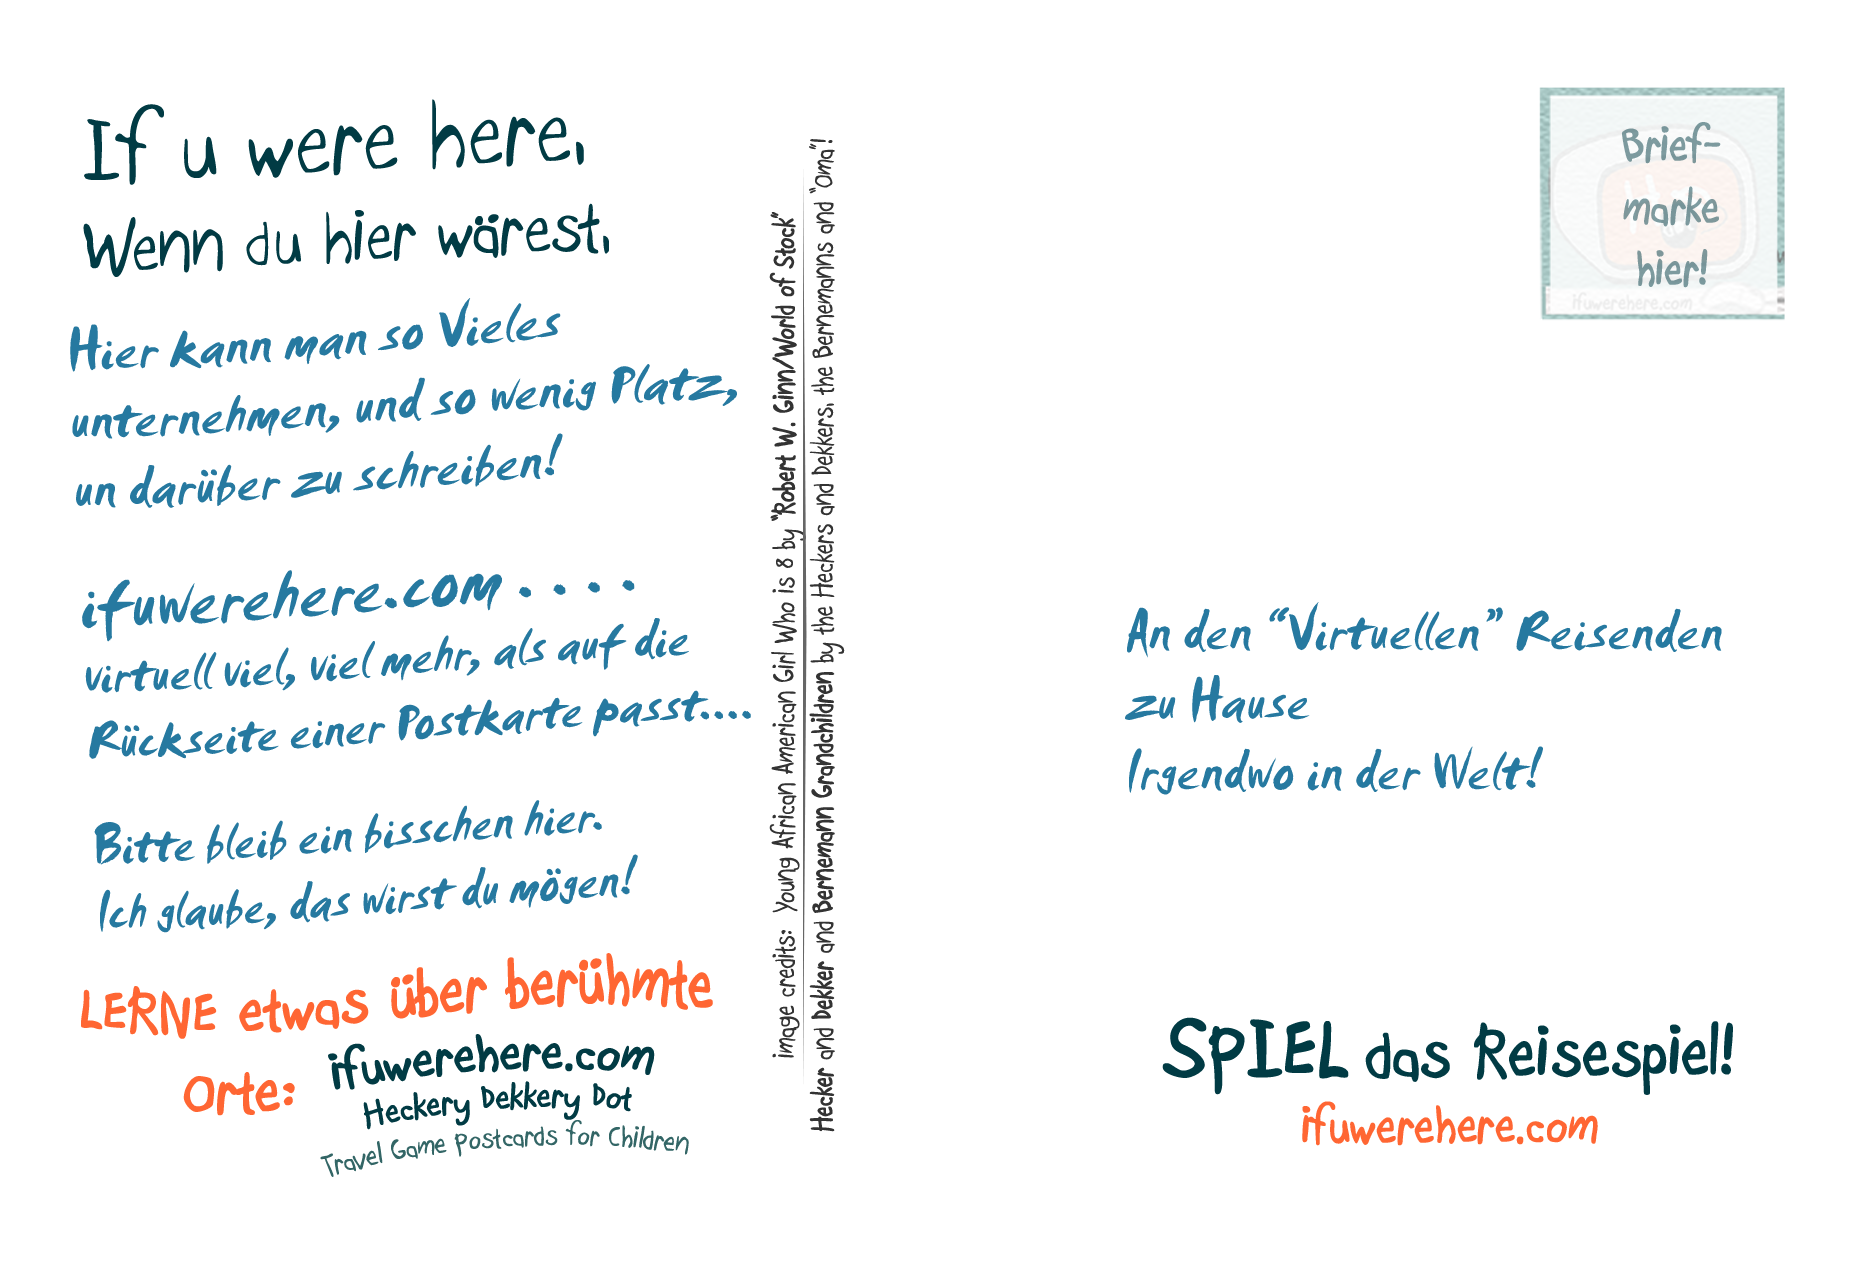 If u were here,
Wenn du hier wärest,
Hier kann man so Vieles
unternehmen, und so wenig Platz,
un darüber zu schreiben!
ifuwerehere.com . . . .
virtuell viel, viel mehr, als auf die
Rückseite einer Postkarte passt....
Bitte bleib ein bisschen hier.
Ich glaube, das wirst du mögen!
LERNE etwas über berühmte
Orte:
ifuwerehere.com
Heckery Dekkery Dot
Travel Game Postcards for Children
image credits: Young African American Girl Who is 8 by "Robert W. Ginn/World of Stock"
Hecker and Dekker and Bernemann Grandchildren by the Heckers and Dekkers, the Bernemanns and "Oma"!
Brief-
marke
hier!
ifuwerehere.com
An den "Virtuellen" Reisenden
zu Hause
Irgendwo in der Welt!
SPIEL das Reisespiel!
ifuwerehere.com